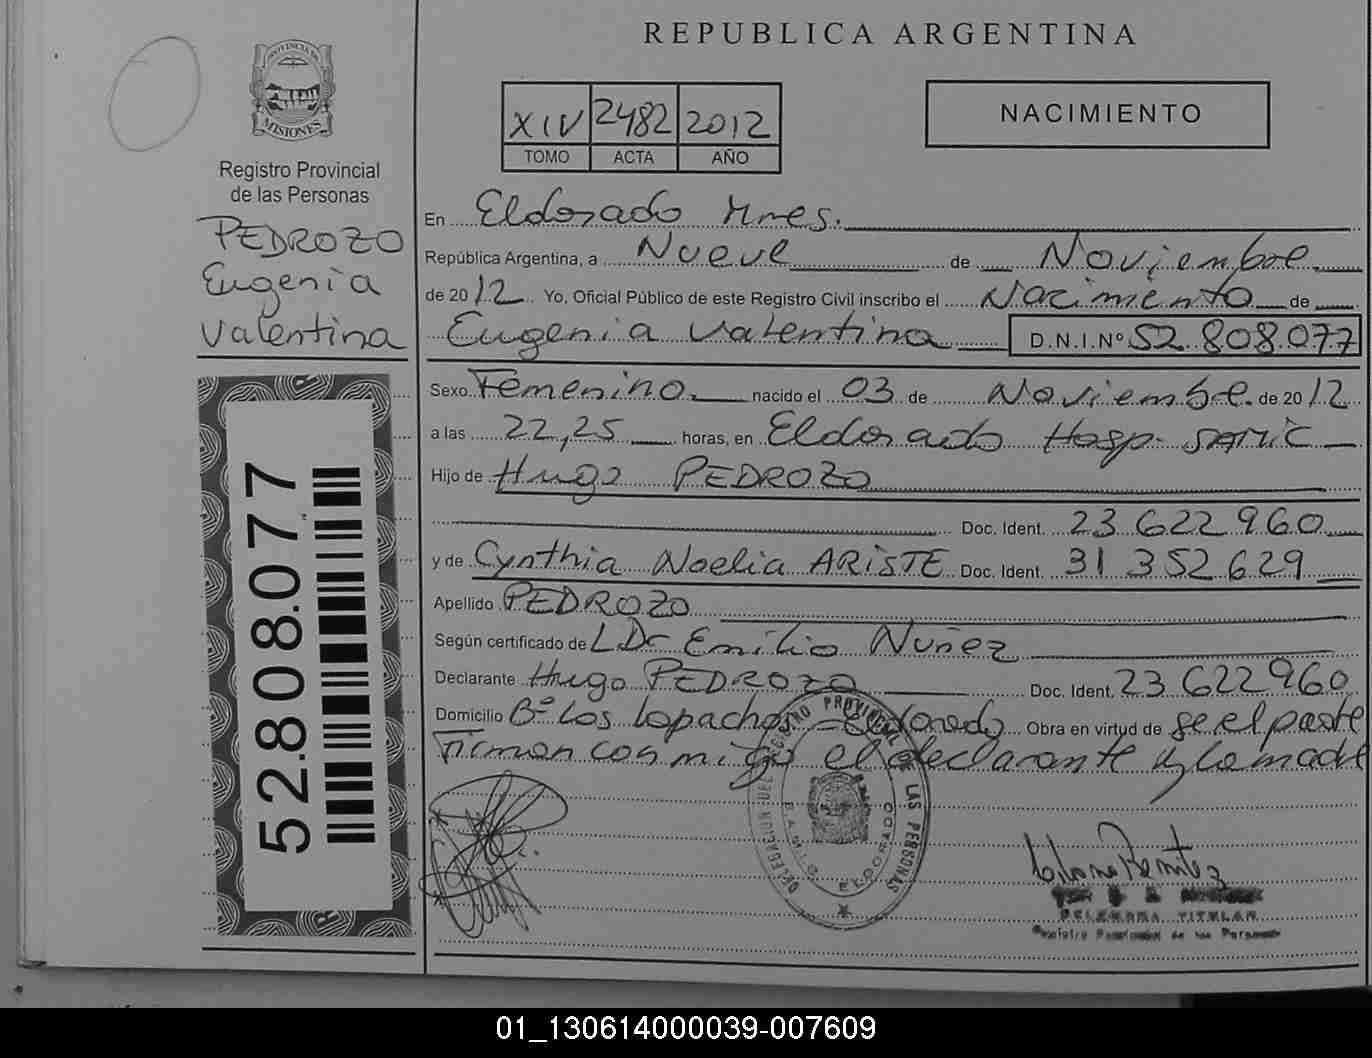 REPUBLICA ARGENTINA
PROVINCIA DE
MISIONES
XIV 2482 2012
TOMO ACTA AÑO
NACIMIENTO
Registro Provincial
de las Personas
PEDROZO
Eugenia
Valentina
52.808.077
En Eldorado Mnes.
República Argentina, a Nueve de Noviembre
de 2012 Yo, Oficial Público de este Registro Civil inscribo el Nacimiento de
Eugenia Valentina D.N.I.Nº 52.808.077
Sexo Femenino nacido el 03 de Noviembre de 2012
a las 22,25 horas, en Eldorado Hosp. SAMIC
Hijo de Hugo PEDROZO
Doc. Ident. 23 622 960
y de Cynthia Noelia ARISTE Doc. Ident. 31 352 629
Apellido PEDROZO
Según certificado de LDo Emilio Nuñez
Declarante Hugo PEDROZO Doc. Ident. 23 622 960
Domicilio Bº Los Lapachos - Eldorado Obra en virtud de ser el padre
Firman conmigo el declarante y la madre
DELEGACION DEL REGISTRO PROVINCIAL DE LAS PERSONAS
ELDORADO
DELEGADA TITULAR
Registro Provincial de las Personas
01_130614000039-007609